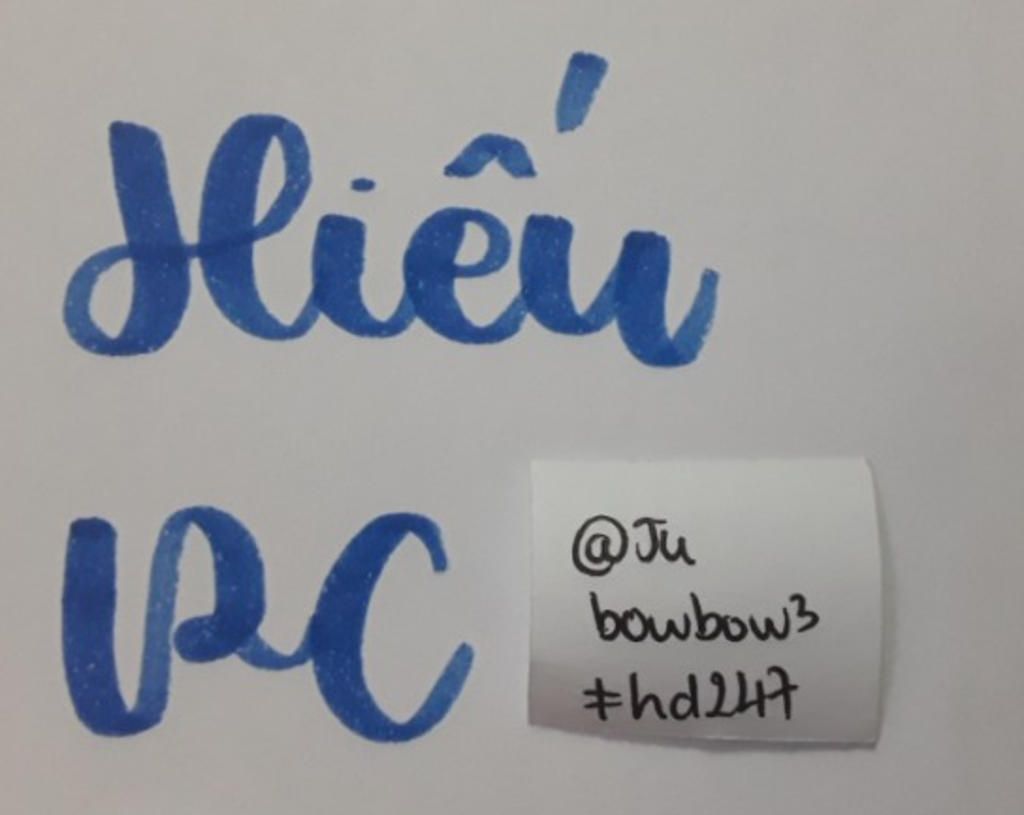 Hiếu
PC
@Ju
bowbow3
#hd247